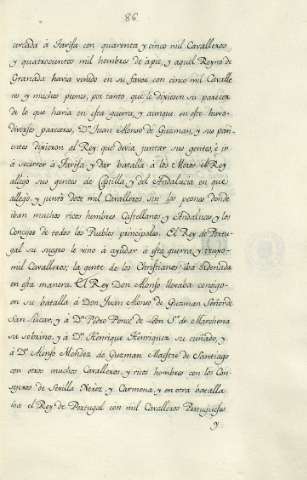 86
cercada à Tarifa con quarenta y cinco mil Cavalleros,
y quatrocientos mil hombres de apie, y aquel Rey no de
Granada havia venido en su favor con cinco mil Cavalle
ros y muchos peones, por tanto que le dixesen su parecer
de lo que haria en esta guerra, y aunque en esto huvo
diversos pareceres, Dn. Juan Alonso de Guzman, y sus pari
entes dixeron al Rey que devia juntar sus gentes, è ir
à socorrer à Tarifa, y dar batalla à los Moros. el Rey
allego sus gentes de Castilla y del Andalucia en que
allego, y juntò doce mil Cavalleros sin los peones donde
iban muchos ricos hombres Castellanos y Andaluces y los
Concejos de todos los Pueblos principales. El Rey de Portu
gal su suegro le vino à ayudar à esta guerra, y truxo
mil Cavalleros; la gente de los Christianos iba ordenada
en esta manera. El Rey Don Alonso llevaba consigo
en su batalla à Don Juan Alonso de Guzman Señor de
San Lucar, y à Dn. Pedro Ponce de Leon Sr. de Marchena
su sobrino, y à Dn. Henrique Henriquez su cuñado, y
à Dn. Alonso Mendez de Guzman Maestre de Santiago
con otros muchos Cavalleros y ricos hombres con los Con
cejos de Sevilla Xerez y Carmona, y en otra batalla
iba el Rey de Portugal con mil Cavalleros Portugueses
y